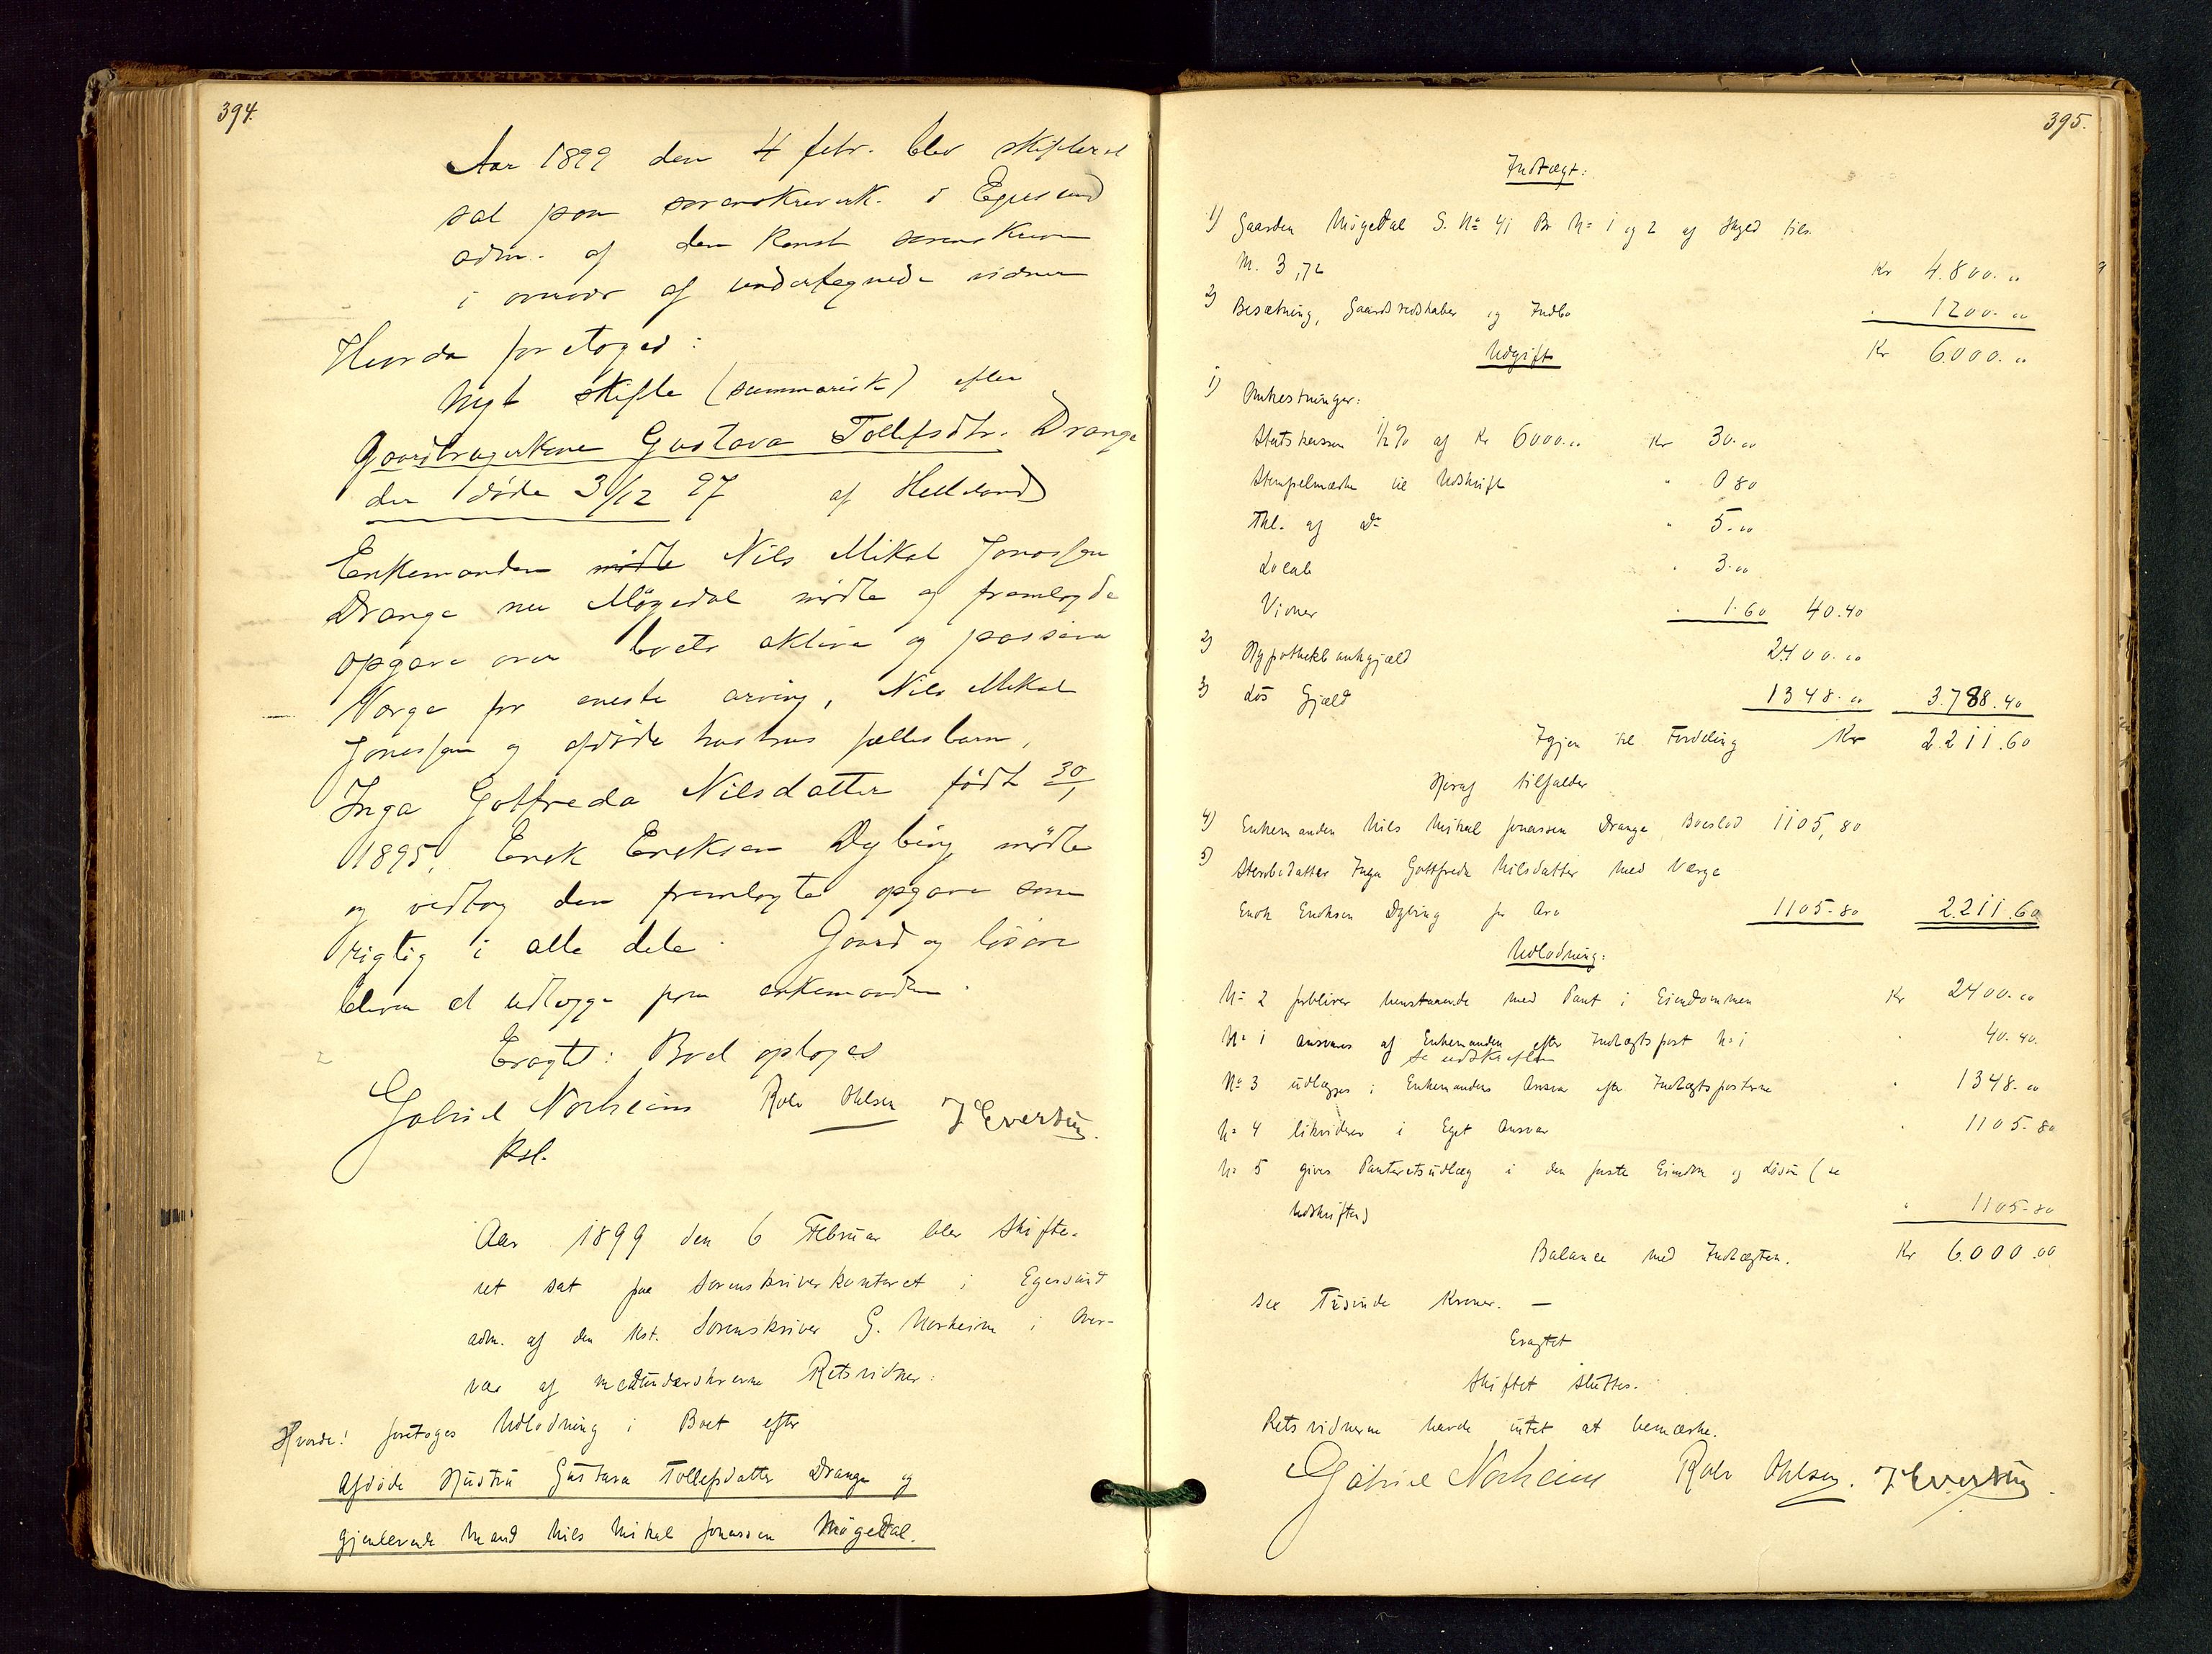 394.
Aar 1899 den 4 febr. blev skifteret
sat paa sorenskriverk. i Egersund
adm. af den Konst sorenskriver
i overvær af undertegnede vidner
Hvorda foretoges:
Nyt skifte (summarisk) efter
Gaardbrugerkone Gustava Tollefsdtr. Drange
der døde 31/12 97 af Helleland
Enkemanden mødte Nils Mikal Jonassen
Drange nu Møgedal mødte og fremlagde
opgave over boets aktiva og passiva
Værge for eneste arving, Nils Mikal
Jonassen og afdøde hustrus fællesbarn,
Inga Gotfreda Nilsdatter født 30/1
1895, Enok Enoksen Dybing mødte
og vedtog den fremlagte opgave som
rigtig i alle dele. Gaard og løsøre
bliver at udlægge paa enkemanden.
Eragtet: Boet optages
Gabriel Norheim Rolv Ohlsen J Evertsen.
Kst.
Aar 1899 den 6 Februar blev Skifte-
ret sat paa Sorenskriverkontoret i Egersund
adm. af den Kst. Sorenskriver G. Norheim i Over-
vær af medunderskrevne Retsvidner:
Hvorda! foretoges Udlodning i Boet efter
Afdøde Hustru Gustava Tollefsdatter Drange og
gjenlevende Mand Nils Mikal Jonassen Møgedal.
395.
Indtægt:
1) Gaarden Møgedal G. No 41 Br. No 1 og 2 af Skyld tils.
M. 3,72 Kr 4.800.00
2) Besætning, Gaardsredskaber og Indbo " 1200.00
Udgift Kr 6000.00
1) Omkostninger:
Statskassen 1/2 % af Kr 6000.00 Kr 30.00
Stempelmærke til Udskrift " 0 80
Thl. af Do " 5.00
Lokale " 3.00
Vidner " 1.60 40.40
2) Hypothekbankgjæld 2400.00
3) Løs Gjæld 1348.00 3.788.40
Igjen til Fordeling Kr 2.211.60
Heraf tilfalder
4) Enkemanden Nils Mikal Jonassen Drange Boeslod 1105,80
5) Stervbodatter Inga Gottfreda Nilsdatter med Værge
Enok Enoksen Dybing for Arv 1105.80 2.211.60
Udlodning:
No 2 forbliver henstaaende med Pant i Eiendommen Kr 2400.00
No 1 ansvares af Enkemanden efter Indtægtspost No 1 " 40.40.
se udskriften
No 3 udlægges i Enkemandens Ansvar efter Indtægtsposterne " 1348.00
No 4 likviderer i Eget Ansvar " 1105.80
No 5 gives Panteretsudlæg i den faste Eiendom og Løsøre (se
Udskriften) " 1105.80
Balance med Indtægten. Kr 6.000.00
sex Tusinde Kroner. —
Eragtet
Skiftet sluttes.
Retsvidnerne havde intet at bemærke.
Gabriel Norheim Rolv Ohlsen. J Evertsen.